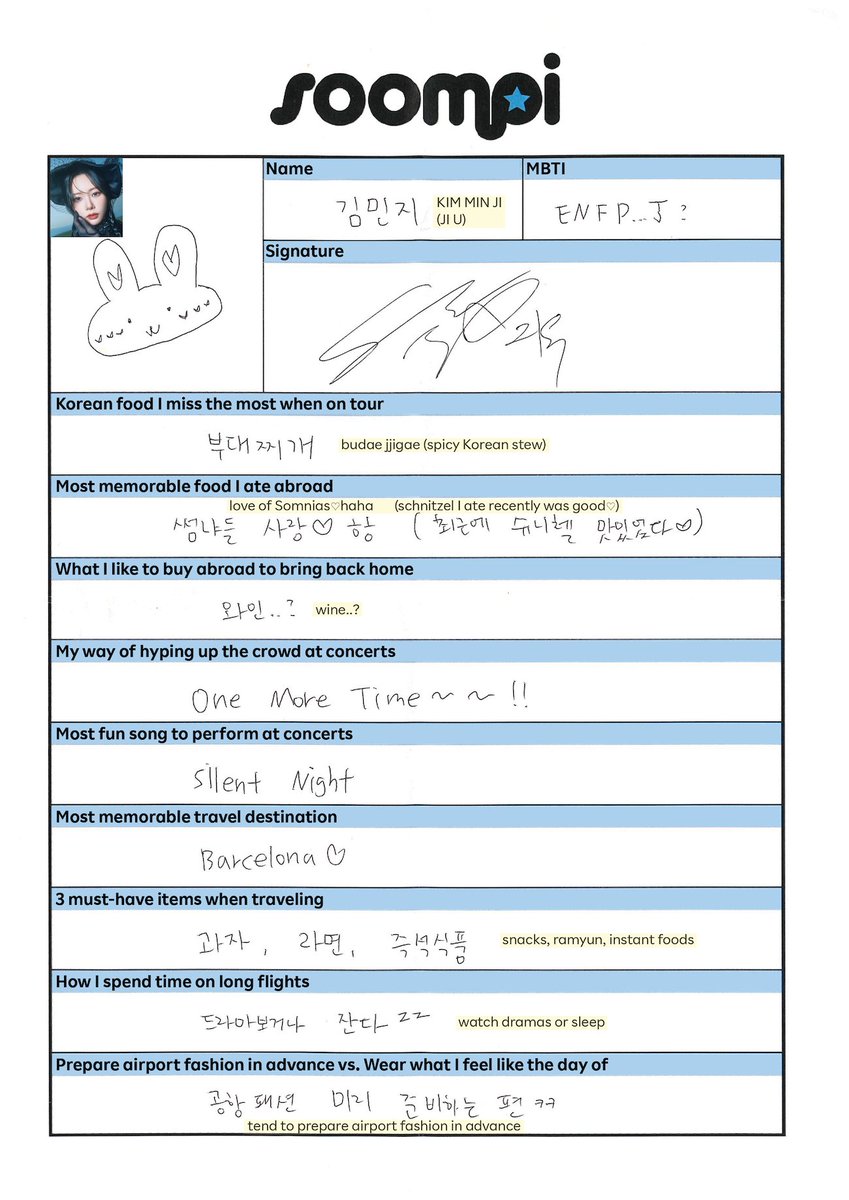 soompi
Name
MBTI
김민지 KIM MIN JI
(JI U)
ENFP...J ?
Signature
Korean food I miss the most when on tour
부대찌개 budae jjigae (spicy Korean stew)
Most memorable food I ate abroad
love of Somnias♡haha (schnitzel I ate recently was good♡)
썸냐들 사랑♡ 하핳 (최근에 슈니첼 맛있었다♡)
What I like to buy abroad to bring back home
와인..? wine..?
My way of hyping up the crowd at concerts
One More Time~~!!
Most fun song to perform at concerts
Silent Night
Most memorable travel destination
Barcelona ♡
3 must-have items when traveling
과자, 라면, 즉석식품 snacks, ramyun, instant foods
How I spend time on long flights
드라마보거나 잔다 zz watch dramas or sleep
Prepare airport fashion in advance vs. Wear what I feel like the day of
공항패션 미리 준비하는 편 ㅋㅋ
tend to prepare airport fashion in advance